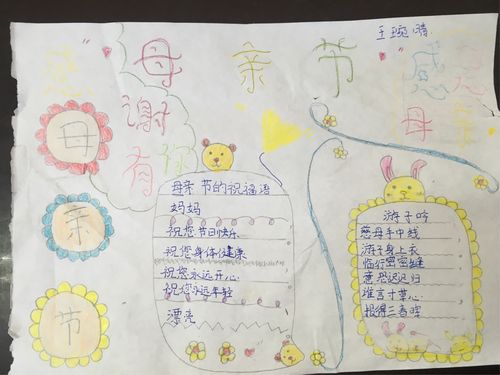 王琬晴
母亲节
感谢
有你
感恩
母亲
母
亲
节
母亲 节的祝福语
妈妈
祝您节日快乐
祝您身体健康
祝您永远开心
祝您永远年轻
漂亮
游子吟
慈母手中线
游子身上衣
临行密密缝
意恐迟迟归
谁言寸草心
报得三春晖